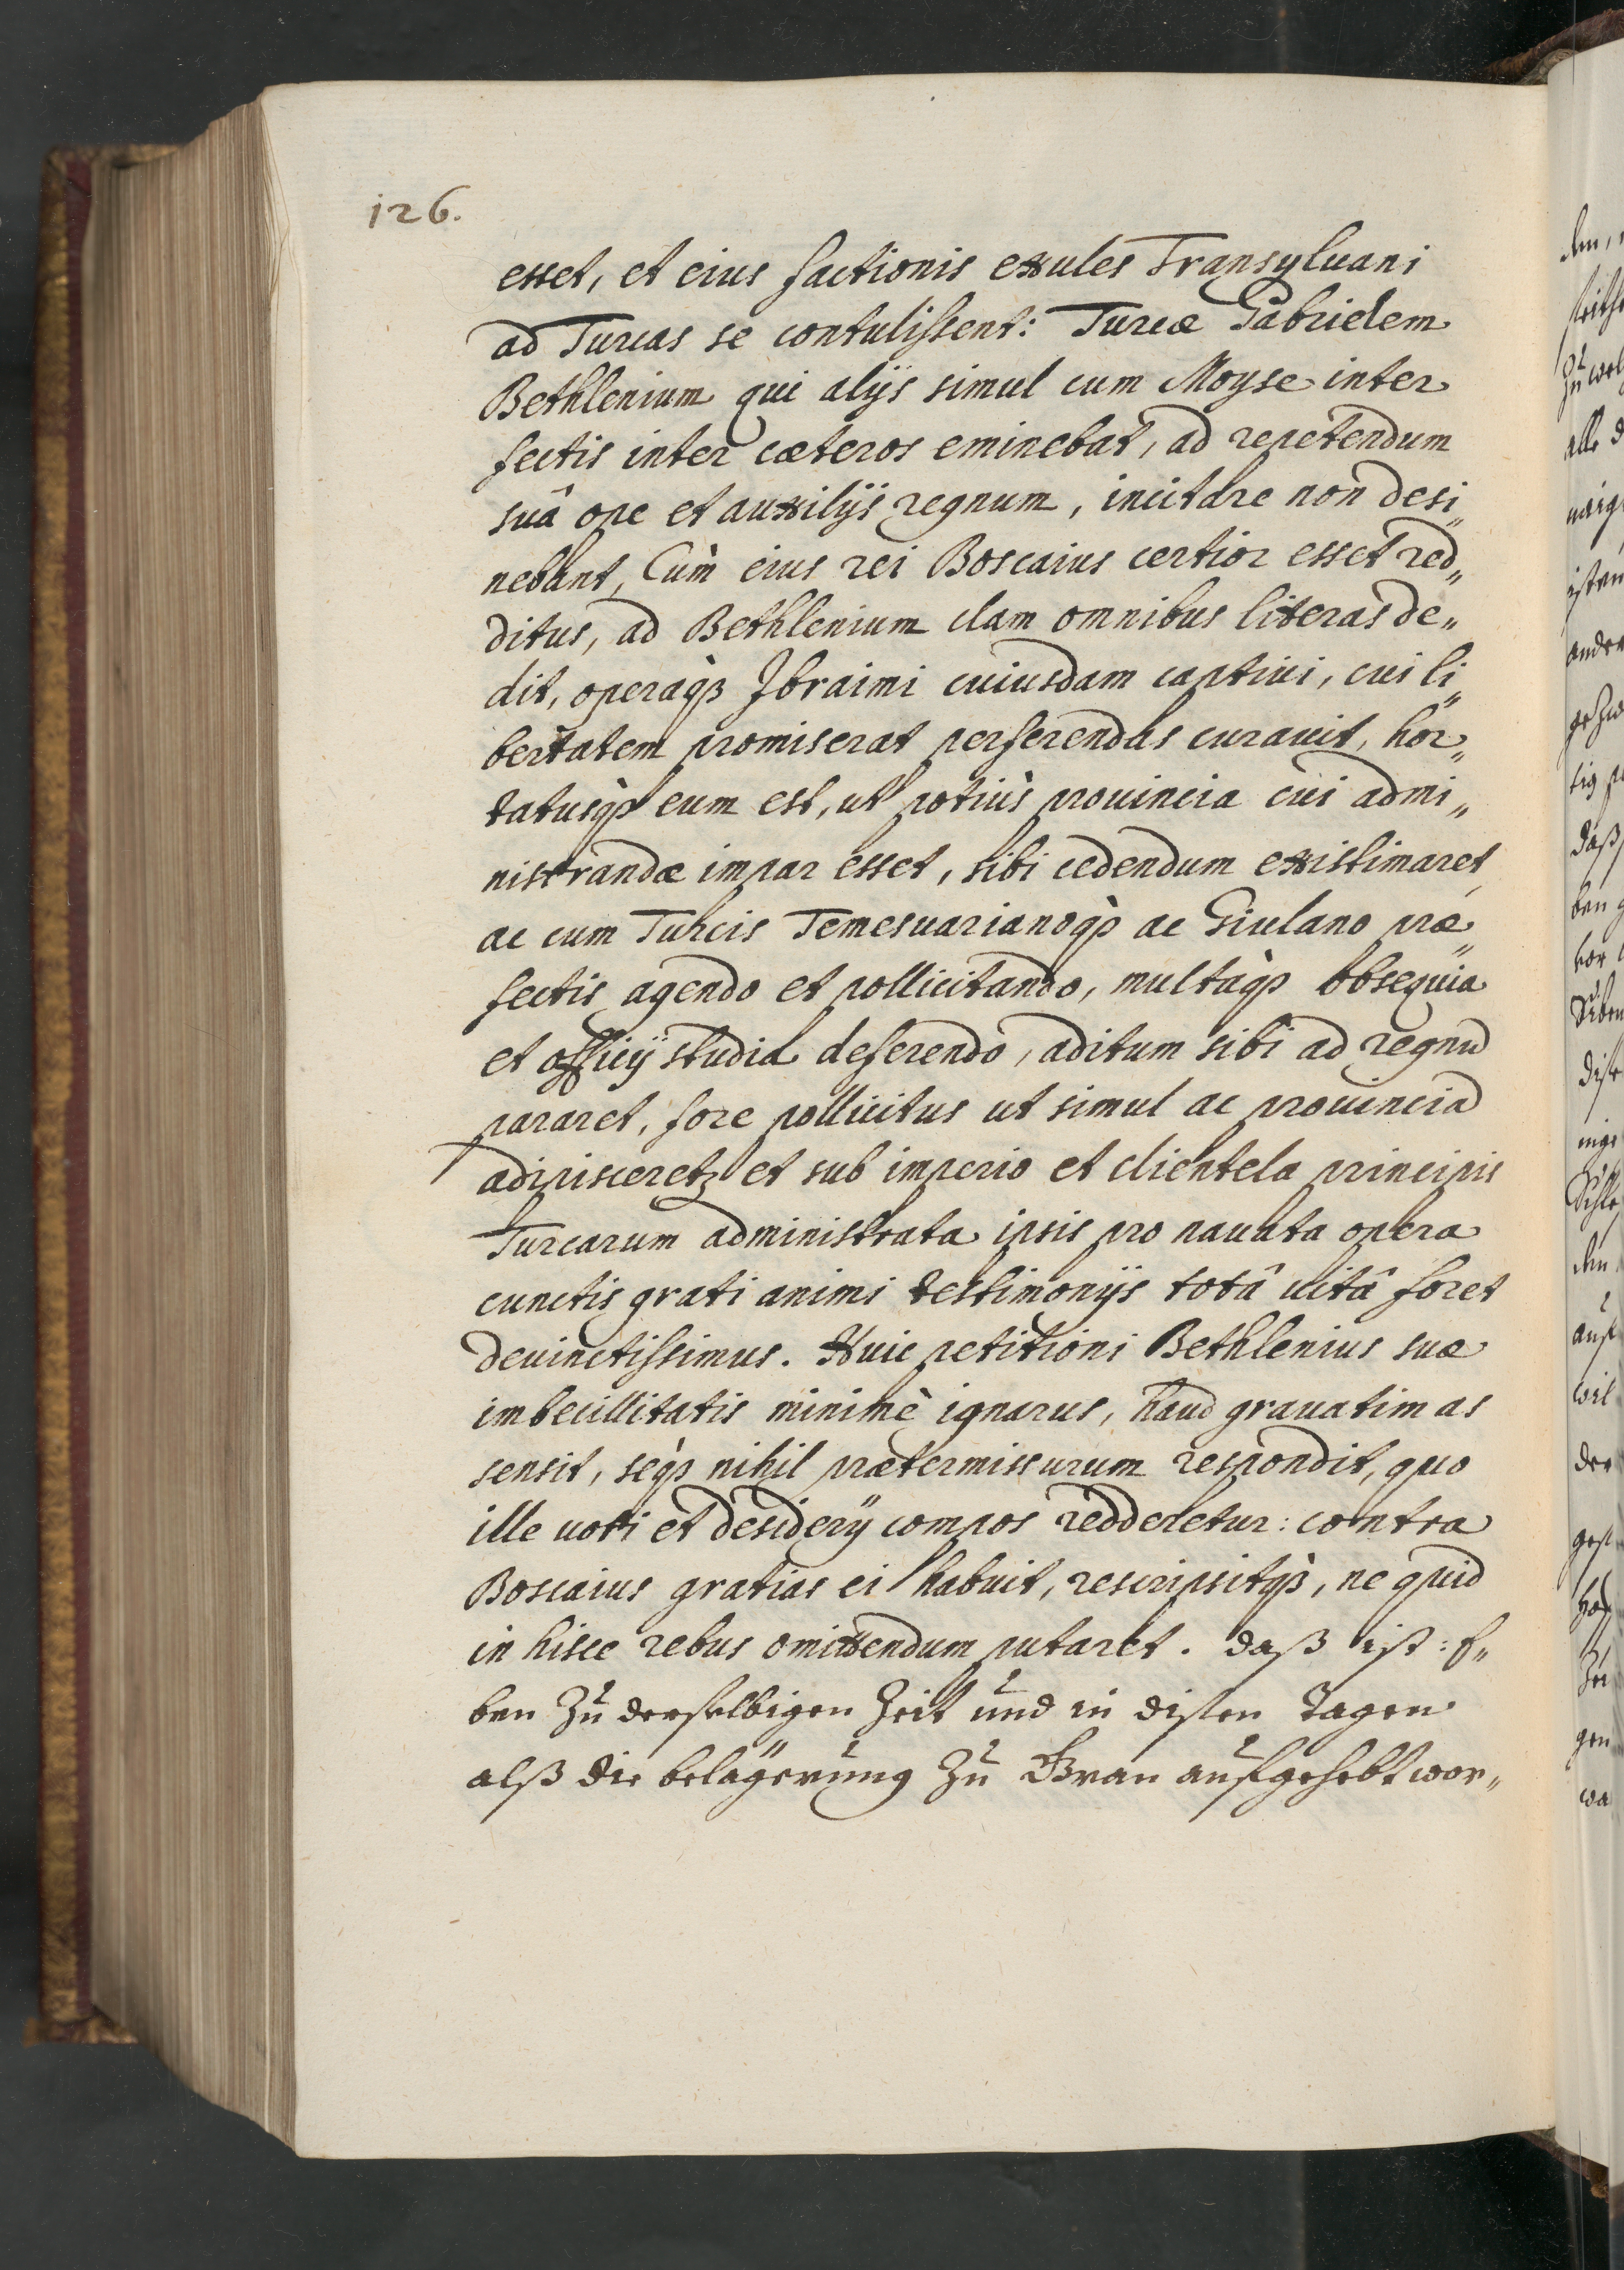 126.
esset, et eius factionis exules Transyluani
ad Turcas se contulissent: Turcæ Gabrielem
Bethlenium qui alijs simul cum Moyse inter
fectis inter cæteros eminebat, ad repetendum
suâ ope et auxilijs regnum, incitare non desi„
nebant, Cùm eius rei Boscaius certior esset red„
ditus, ad Bethlenium clam omnibus literas de„
dit, operaqꝫ Ibraimi cuiusdam captiui, cui li„
bertatem promiserat perferendas curauit, hor„
tatusqꝫ eum est, ut potiùs prouincia cui admi„
nistrandæ impar esset, sibi cedendum existimaret,
ac cum Turcis Temesuarianoqꝫ ac Giulano præ„
fectis agendo et pollicitando, multaqꝫ obsequia
et officij studia deferendo, aditum sibi ad regnũ
pararet, fore pollicitus ut simul ac prouinciã
adipisceretꝫ et sub imperio et clientela principis
Turcarum administrata ipsis pro nauata opera
cunctis grati animi testimonijs totâ uitâ foret
deuinctissimus. Huic petitioni Bethlenius suæ
imbecillitatis minimè ignarus, haud grauatim as
sensit, seqꝫ nihil prætermissurum respondit, quo
ille uoti et desiderij compos redderetur: contra
Boscaius gratias ei habuit, rescripsitqꝫ, ne quid
in hisce rebus omittendum putaret. daß ist: E„
ben zu derselbigen Zeit und in disen Tagen
alß die belägerung zu Gran aufgehebt wor„